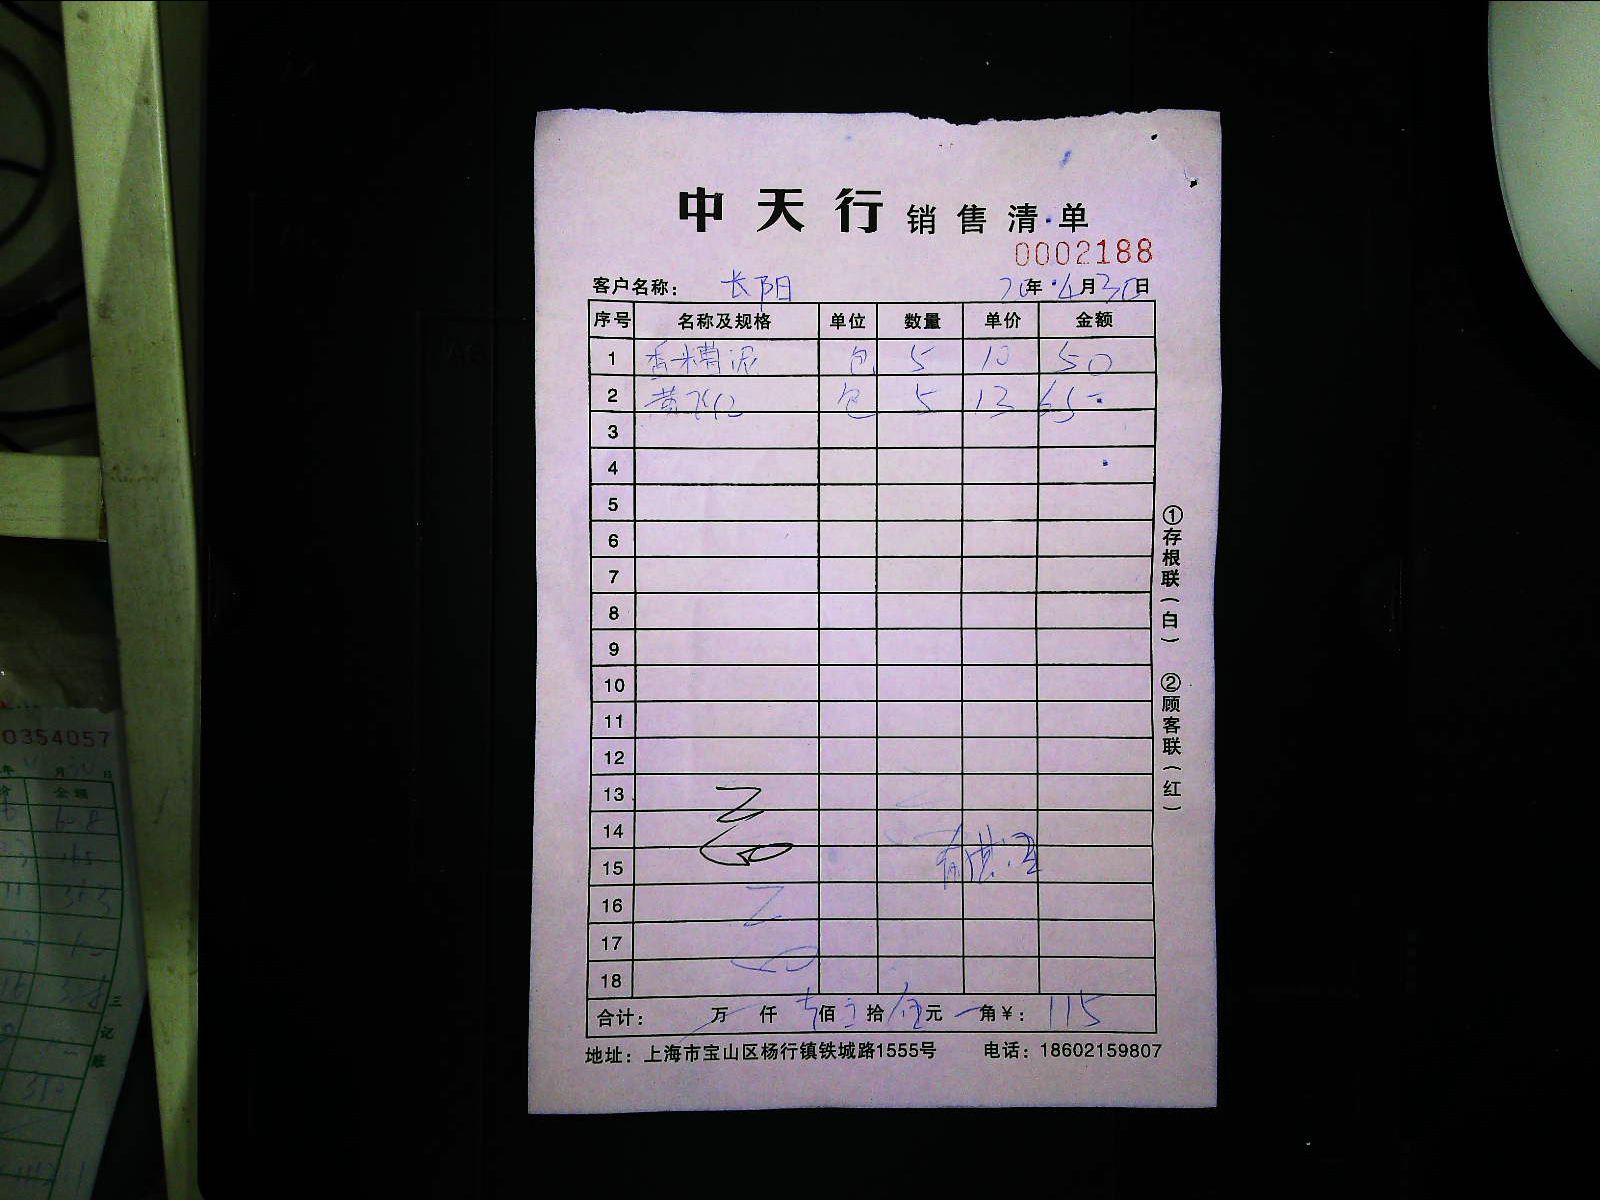 中天行 销售清单
0002188
客户名称： 长阳 20年 4月30日
序号 名称及规格 单位 数量 单价 金额
1 香米槽泥 包 5 10 50
2 黄飞红 包 5 13 65-
3
4
5
6
7
8
9
10
11
12
13
14
15
16
17
18
合计： 万 仟 壹佰 拾 伍元 角￥： 115
地址：上海市宝山区杨行镇铁城路1555号 电话：18602159807
①存根联（白） ②顾客联（红）
0354057
年 月 日
金额
三记账